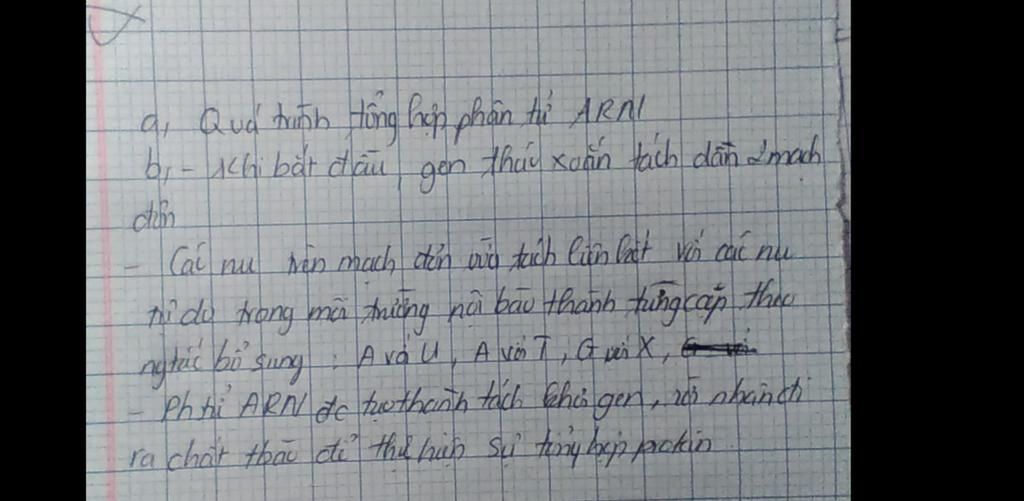 a, Quá trình tổng hợp phân tử ARN
b, - Khi bắt đầu, gen tháo xoắn tách dần 2 mạch
đơn
- Các nu trên mạch đơn vừa tách liên kết với các nu
tự do trong môi trường nội bào thành từng cặp theo
ngtắc bổ sung : A với U, A với T, G với X,
- Ph tử ARN đc tạo thành tách khỏi gen, rời nhân đi
ra chất tbào để thự hiện sự tổng hợp protein